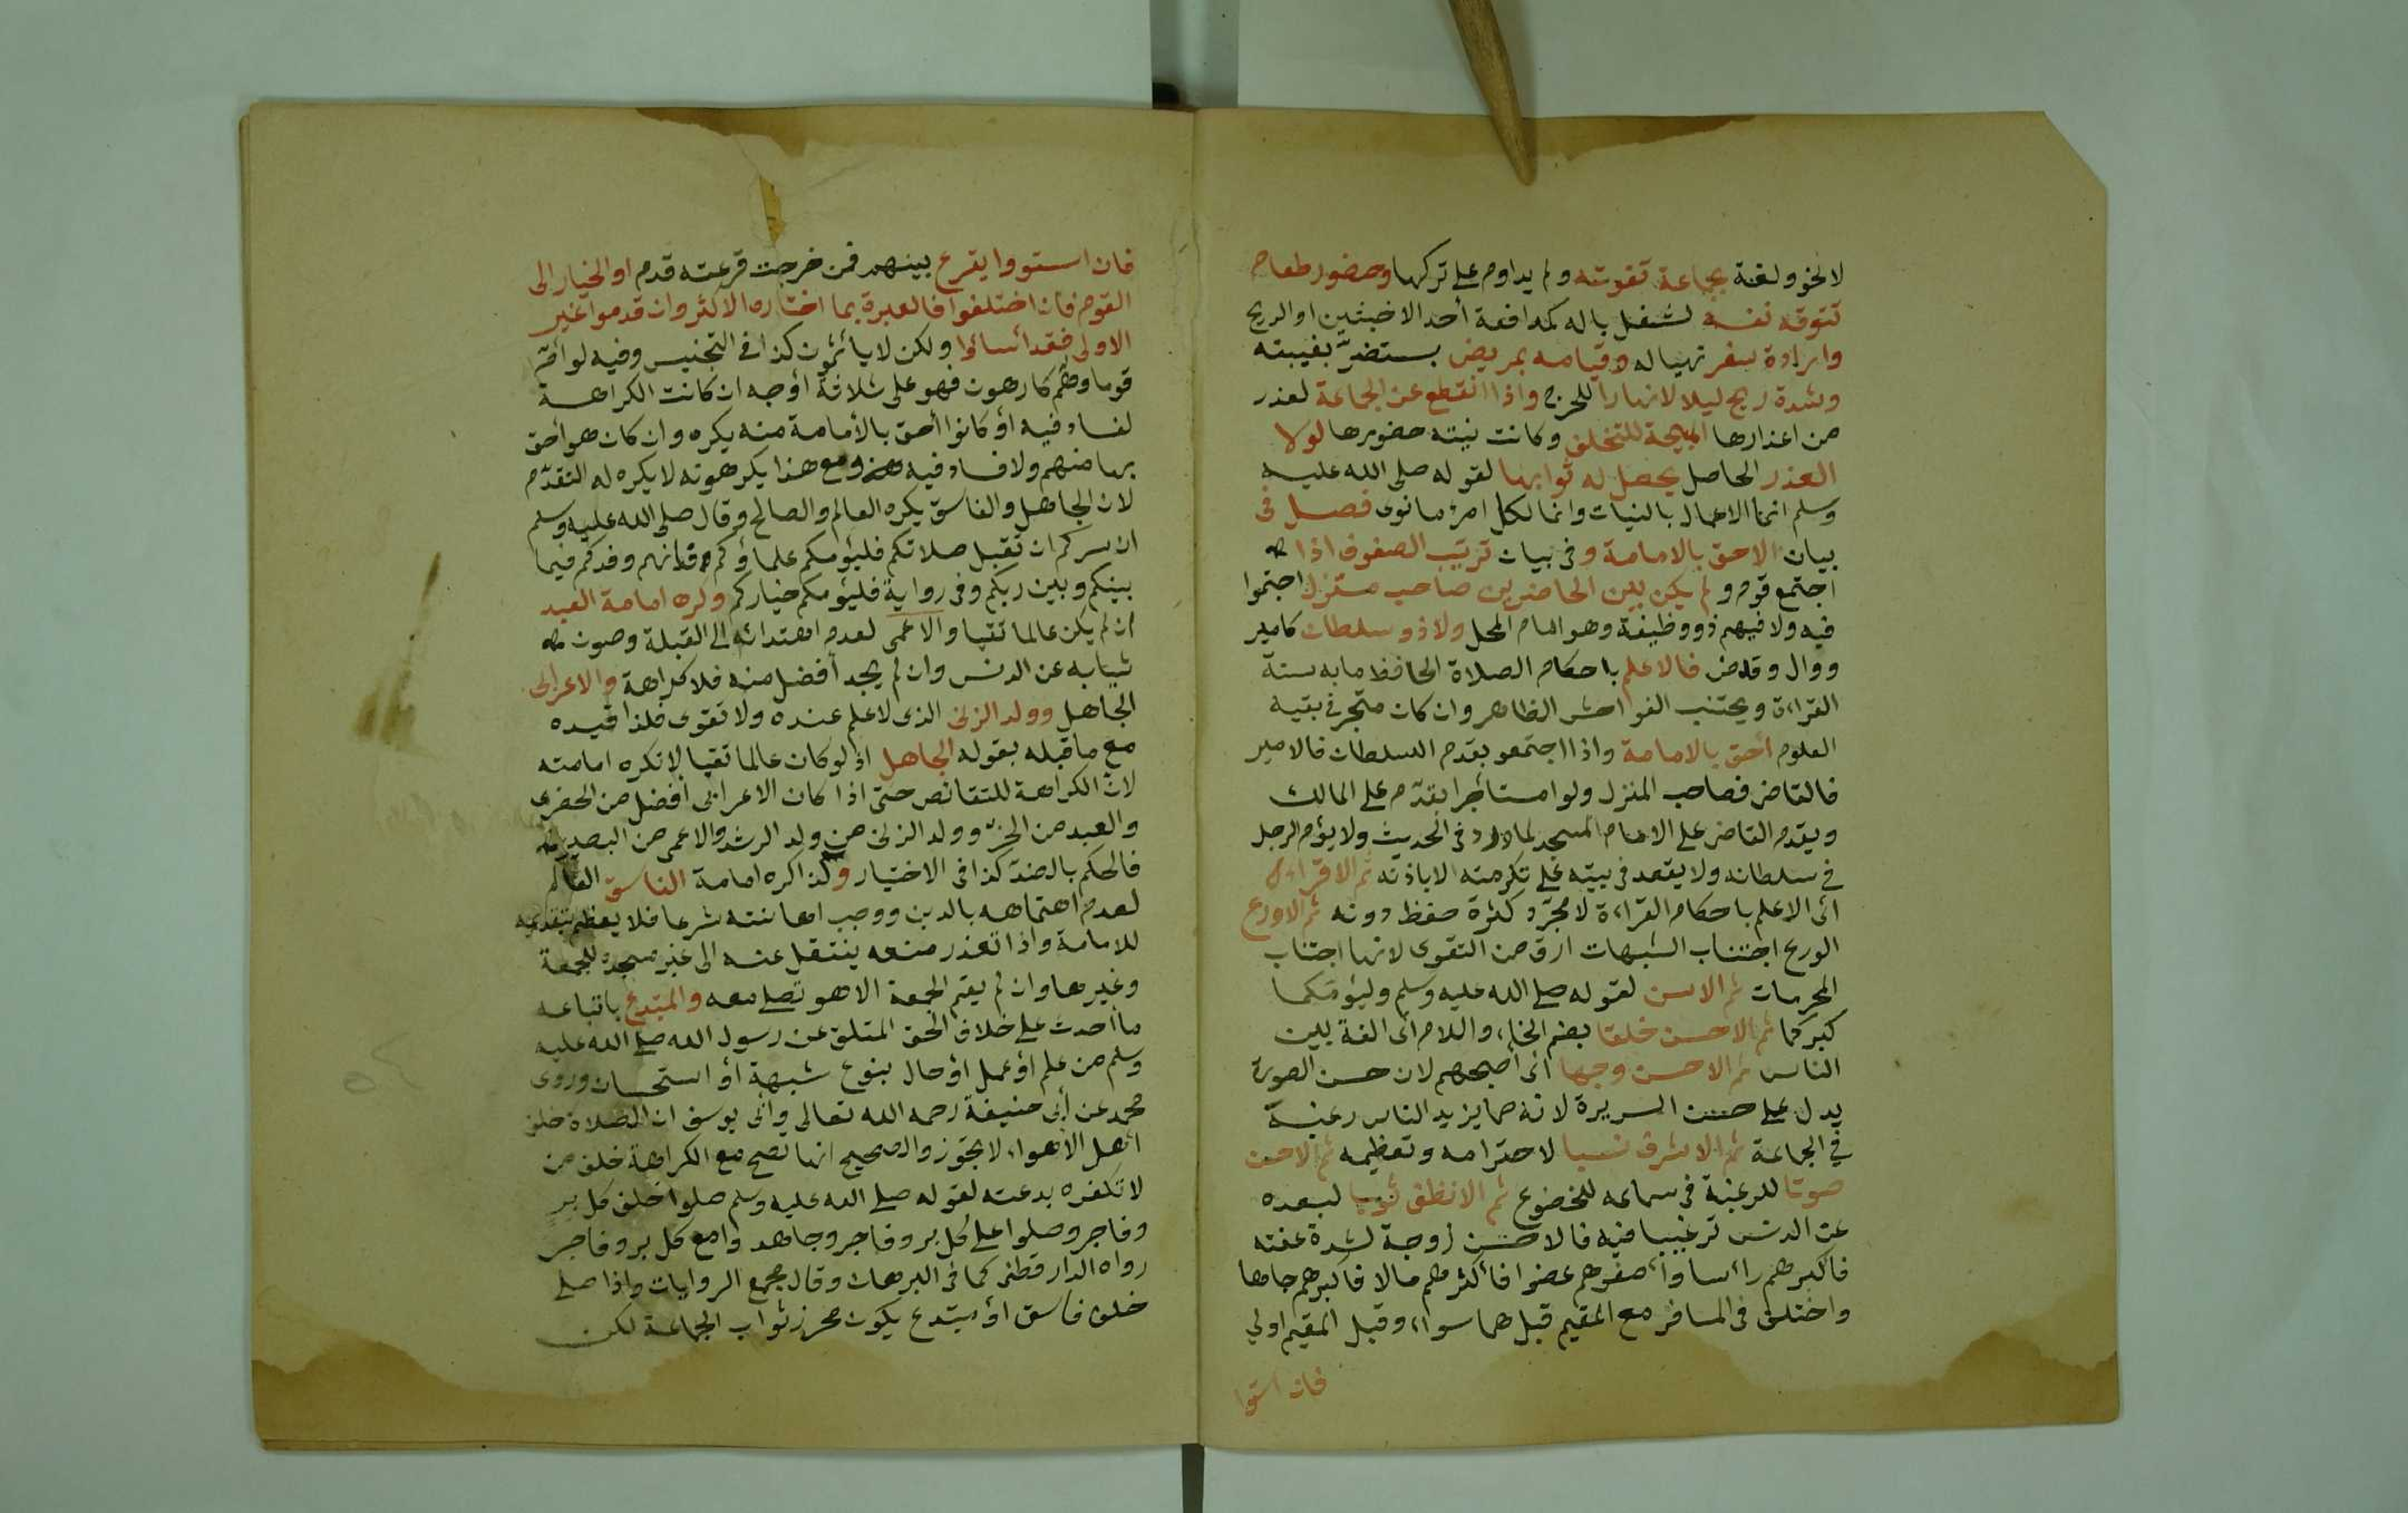 لانحو ولغة بجماعة تفوته ولم يداوم على تركها وحضور طعام
تتوقه نفسه لشغل باله كمدافعة أحد الاخبثين او الريح
وارادة سفر تهيا له وقيامه بمريض يستضرّ بغيبته
وشدة ريح ليلا لا نهارا للحرج واذا انقطع عن الجماعة لعذر
من اعذارها المبيحة للتخلف وكانت نيته حضورها لولا
العذر الحاصل يحصل له ثوابها لقوله صلى الله عليه
وسلم انما الاعمال بالنيات وانما لكل امرئ ما نوى فصل في
بيان الاحق بالامامة وفي بيان ترتيب الصفوف اذا
اجتمع قوم و لم يكن بين الحاضرين صاحب منزل اجتمعوا
فيه ولا فيهم ذو وظيفة وهو امام المحل ولا ذو سلطان كامير
ووال وقاض فالاعلم باحكام الصلاة الحافظ ما به سنة
القراءة ويجتنب الفواحش الظاهرة وان كان متبحر في بقية
العلوم أحق بالامامة واذا اجتمعو يقدم السلطان فالامير
فالقاض فصاحب المنزل ولو مستأجرا يقدّم على المالك
ويقدم القاضي على الامام المسجد لما ورد في الحديث ولا يؤم الرجل
في سلطانه ولا يقعد في بيته على تكرمته الا باذنه ثم الاقراء
اى الاعلم باحكام القراءة لا مجرّد كثرة حفظ دونه ثم الاورع
الورع اجتناب الشبهات ارق من التقوى لانها اجتناب
المحرمات ثم الاسن لقوله صلى الله عليه وسلم وليؤمكما
كبركما ثم الاحسن خلقا بضم الخاء واللام أى الفة بين
الناس ثم الاحسن وجها اى أصبحهم لان حسن الصورة
يدل على حسن السريرة لانه مما يزيد الناس رغبة
في الجماعة ثم الاشرف نسبا لاحترامه وتعظيمه ثم الاحسن
صوتا للرغبة في سماعه للخضوع ثم الانظف ثوبا لبعده
عن الدنس ترغيبا فيه فالاحسن زوجة لشدة عفته
فاكبرهم راسا واصغرهم عضوا فأكثرهم مالا فاكبرهم جاها
واختلف في المسافر مع المقيم قيل هما سواء وقيل المقيم اولي
فان استوا
فان استووا يقرع بينهم فمن خرجت قرعته قدم او الخيار الى
القوم فان اختلفوا فالعبرة بما اختاره الاكثر وان قدموا غير
الاولى فقد أساؤا ولكن لا يأثمون كذا في التجنيس وفيه لو أمّ
قوما وهم كارهون فهو على ثلاثة أوجه ان كانت الكراهة
لفساد فيه أو كانوا أحق بالأمامة منه يكره وان كان هو أحق
بها منهم ولا فساد فيه ومع هذا يكرهونه لا يكره له التقدّم
لان الجاهل والفاسق يكره العالم والصالح وقال صلى الله عليه وسلم
ان سركم ان تقبل صلاتكم فليؤمكم علماؤكم فانهم وفدكم فيما
بينكم وبين ربكم وفي رواية فليؤمكم خياركم وكره امامة العبد
ان لم يكن عالما تقيا والاعمى لعدم اهتدائه الى القبلة وصون
ثيابه عن الدنس وان لم يجد أفضل منه فلا كراهة والاعرابى
الجاهل وولد الزنى الذى لا علم عنده ولا تقوى فلذا قيده
مع ما قبله بقوله الجاهل اذ لو كان عالما تقيا لا تكره امامته
لان الكراهة للنقائص حتى اذا كان الاعرابى أفضل من الحضرى
والعبد من الحرّ وولد الزنى من ولد الرشد والاعمى من البصير
فالحكم بالضدّ كذا في الاختيار وكذا كره امامة الفاسق العالم
لعدم اهتمامه بالدين ووجب اهانته شرعا فلا يعظم بتقديمه
للامامة واذا تعذر منعه ينتقل عنه الى غير مسجده للجمعة
وغيرها وان لم يقم الجمعة الا هو تصلى معه والمبتدع باتباعه
ما أحدث على خلاف الحق المتلقى عن رسول الله صلى الله عليه
وسلم من علم أو عمل أو حال بنوع شبهة أو استحسان وروى
محمد عن أبى حنيفة رحمه الله تعالى وأبى يوسف ان الصلاة خلف
اهل الاهواء لا تجوز والصحيح انها تصح مع الكراهة خلف من
لا تكفره بدعته لقوله صلى الله عليه وسلم صلوا خلف كل بر
وفاجر وصلوا على كل بر وفاجر وجاهدوا مع كل بر وفاجر
رواه الدارقطني كما في البرهان وقال مجمع الروايات واذا صلى
خلف فاسق أو مبتدع يكون محرز ثواب الجماعة لكن